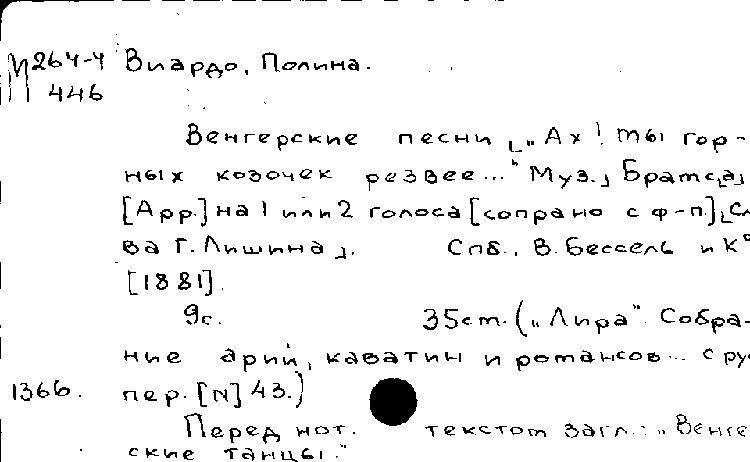 М264-4 Виардо, Полина.
446
Венгерские песни [„Ах! ты гор-
ных козочек резвее..." Муз.] Братс[а]
[Арр.] на 1 или 2 голоса [сопрано с ф-п.] [Сл
ва Г. Лишина].  Спб., В. Бессель и К°
[1881].
9с.  35см. („Лира". Собра-
ние арий, каватин и романсов... с рус
1366. пер. [N] 43.)
Перед нот. текстом загл.: „Венге
ские танцы."